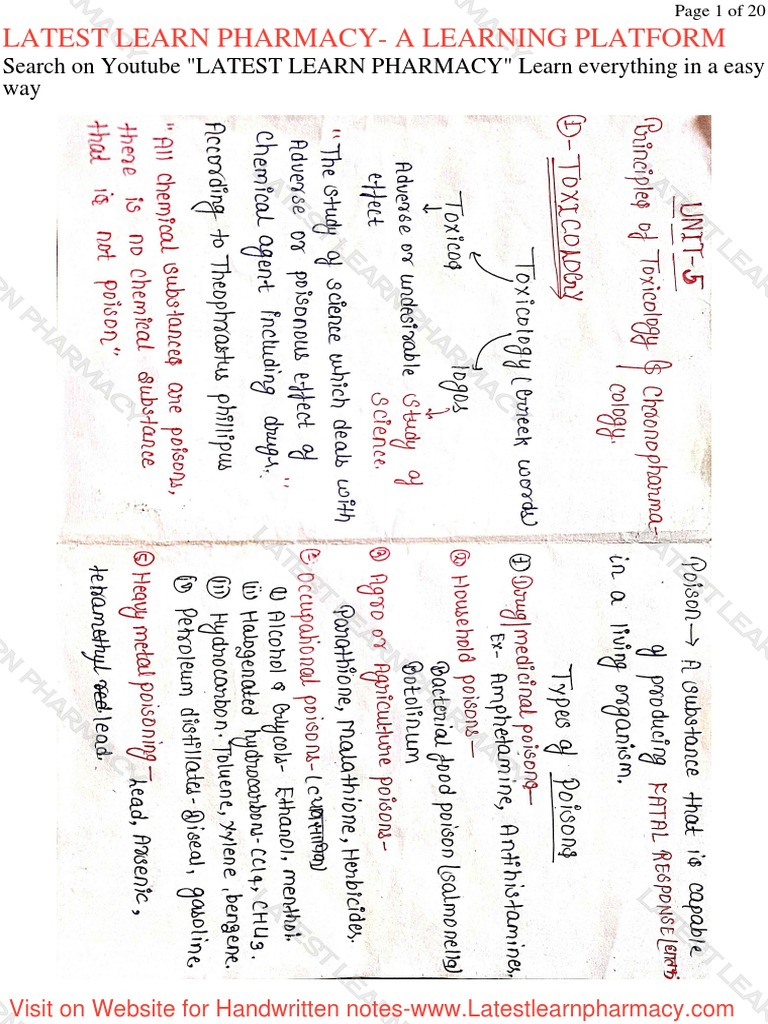 Page 1 of 20
LATEST LEARN PHARMACY- A LEARNING PLATFORM
Search on Youtube "LATEST LEARN PHARMACY" Learn everything in a easy
way
UNIT-5
Principles of Toxicology & Chronopharma-
cology.
① - TOXICOLOGY
Toxicology (Greek words)
Toxicos logos
Adverse or undesirable study of
effect science.
"The study of science which deals with
Adverse or poisonous effect of
chemical agent including drugs."
According to Theophrastus phillipus
"All chemical substances are poisons,
there is no chemical substance
that is not poison"
Poison → A substance that is capable
of producing FATAL RESPONSE
in a living organism.
Types of Poisons
① Drug/medicinal poisons-
Ex- Amphetamine, Antihistamines,
② Household poisons-
Bacterial food poison (salmonella)
Botolinum
③ Agro or Agriculture poisons-
Parathione, Malathione, Herbicides.
occupational poisons-
i) Alcohol & Glycols- Ethanol, menthol.
(ii) Halogenated hydrocarbons- CCl4, CHCl3.
(iii) Hydrocarbon. Toluene, xylene, bengene.
(iv) Petroleum distillates- diseal, gasoline,
⑤ Heavy metal poisoning- Lead, Arsenic,
tetramethyl lead.
Visit on Website for Handwritten notes-www.Latestlearnpharmacy.com